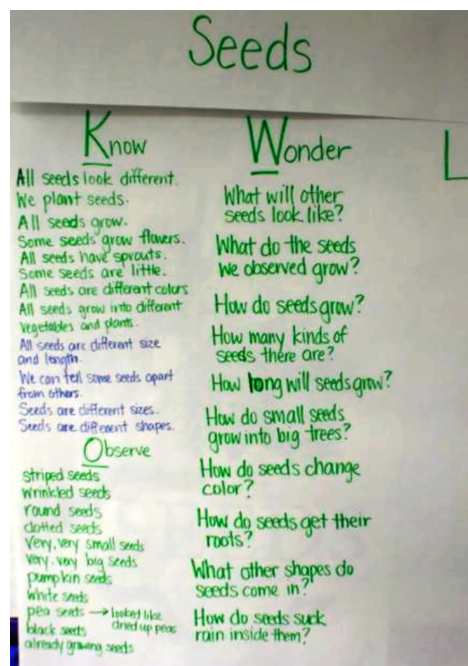 Seeds
Know
All seeds look different.
We plant seeds.
All seeds grow.
Some seeds grow flowers.
All seeds have sprouts.
Some seeds are little.
All seeds are different colors
All seeds grow into different
vegetables and plants.
All seeds are different size
and length.
We can tell some seeds apart
from others.
Seeds are different sizes.
Seeds are different shapes.
Observe
striped seeds
wrinkled seeds
round seeds
dotted seeds
very, very small seeds
very, very big seeds
pumpkin seeds
white seeds
pea seeds → looked like
dried up peas
black seeds
already growing seeds
Wonder
What will other
seeds look like?
What do the seeds
we observed grow?
How do seeds grow?
How many kinds of
seeds there are?
How long will seeds grow?
How do small seeds
grow into big trees?
How do seeds change
color?
How do seeds get their
roots?
What other shapes do
seeds come in?
How do seeds suck
rain inside them?
L